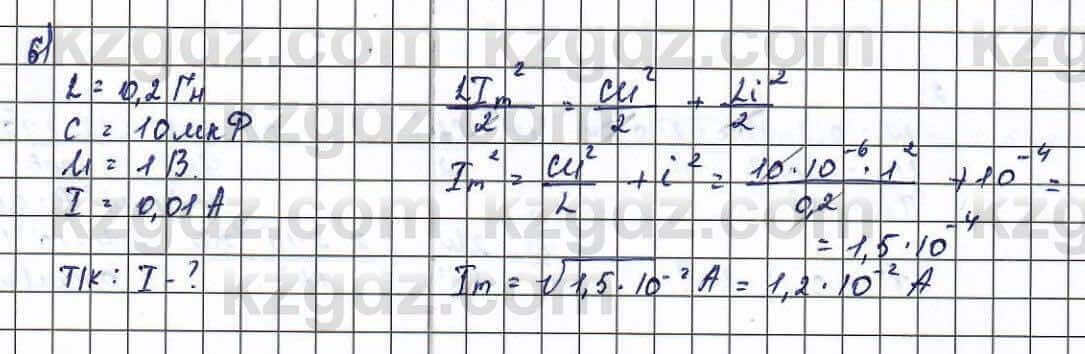 6)
L = 0,2 Гн
C = 10 мкФ
U = 1 В.
I = 0,01 А
Т/к: I - ?
LIm²/2 = CU²/2 + Li²/2
Im² = CU²/L + i² = 10·10⁻⁶·1²/0,2 + 10⁻⁴ =
= 1,5·10⁻⁴
Im = √1,5·10⁻² А = 1,2·10⁻² А
kzgdz.com
kzgdz.com
kzgdz.com
kzgdz.com